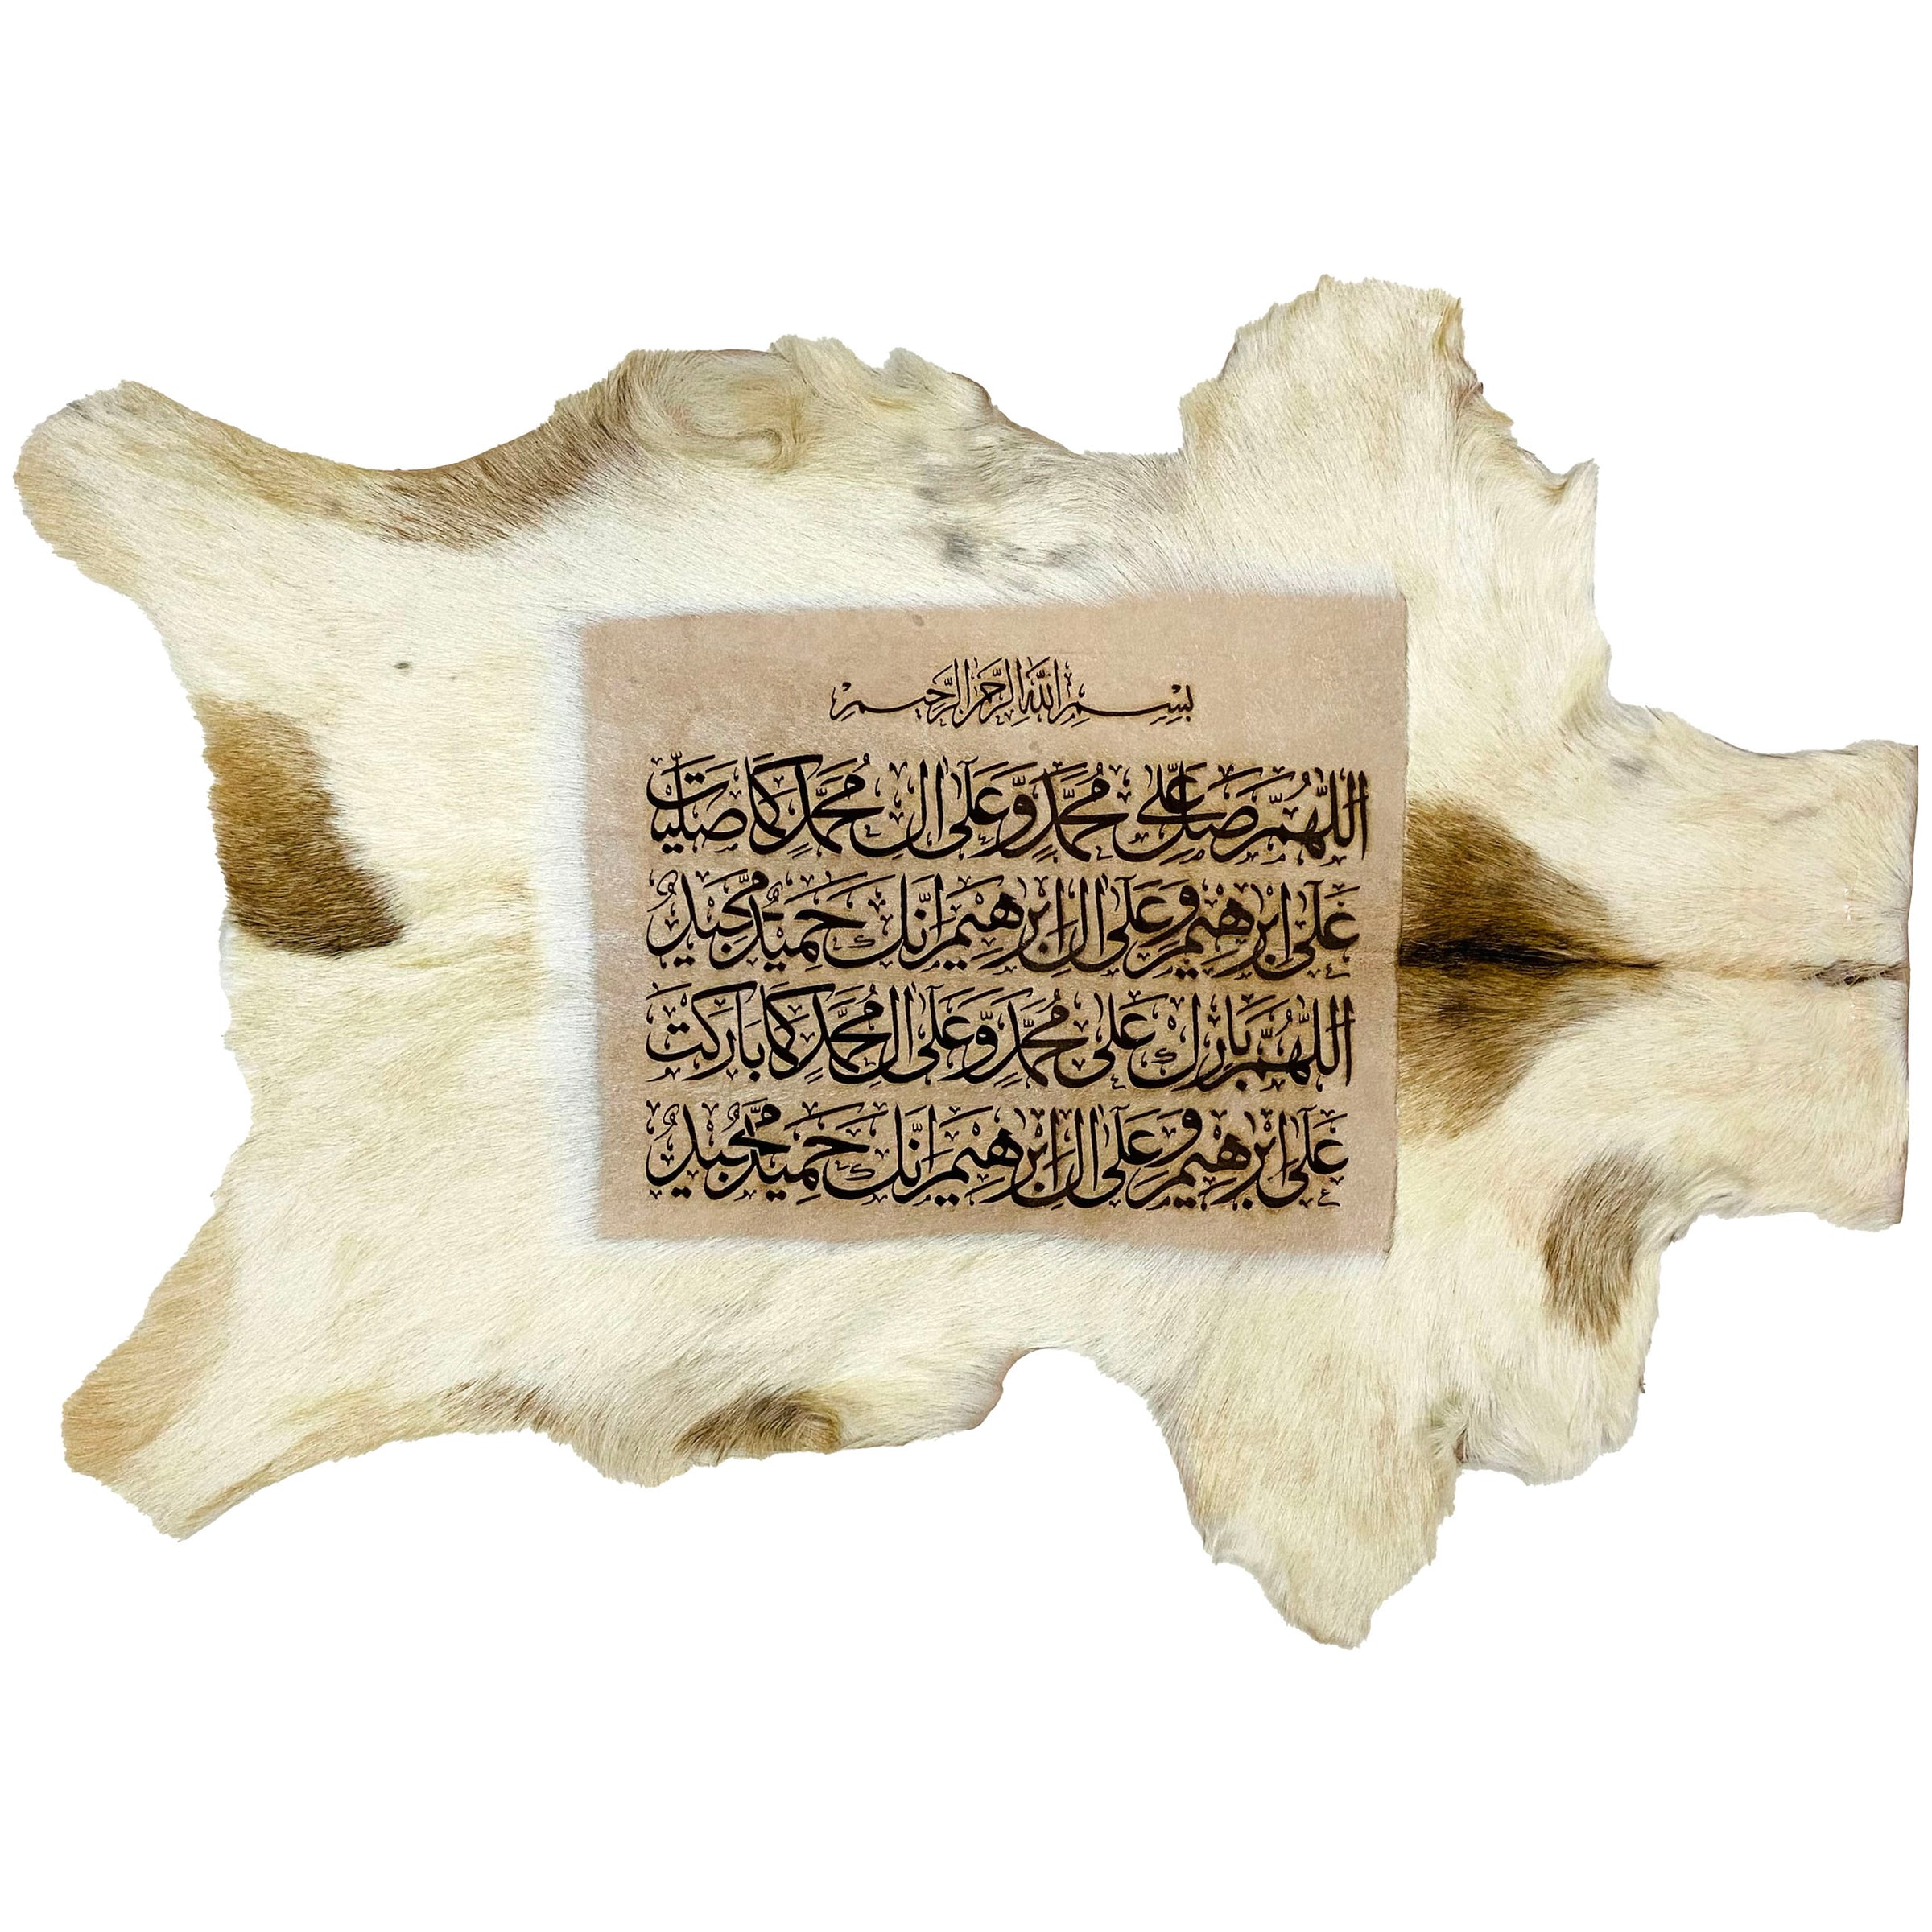 بِسْمِ اللهِ الرَّحْمٰنِ الرَّحِيْمِ
اَللّٰهُمَّ صَلِّ عَلٰى مُحَمَّدٍ وَّعَلٰٓى اٰلِ مُحَمَّدٍ كَمَا صَلَّيْتَ
عَلٰٓى اِبْرٰهِيْمَ وَعَلٰٓى اٰلِ اِبْرٰهِيْمَ اِنَّكَ حَمِيْدٌ مَّجِيْدٌ
اَللّٰهُمَّ بَارِكْ عَلٰى مُحَمَّدٍ وَّعَلٰٓى اٰلِ مُحَمَّدٍ كَمَا بَارَكْتَ
عَلٰٓى اِبْرٰهِيْمَ وَعَلٰٓى اٰلِ اِبْرٰهِيْمَ اِنَّكَ حَمِيْدٌ مَّجِيْدٌ